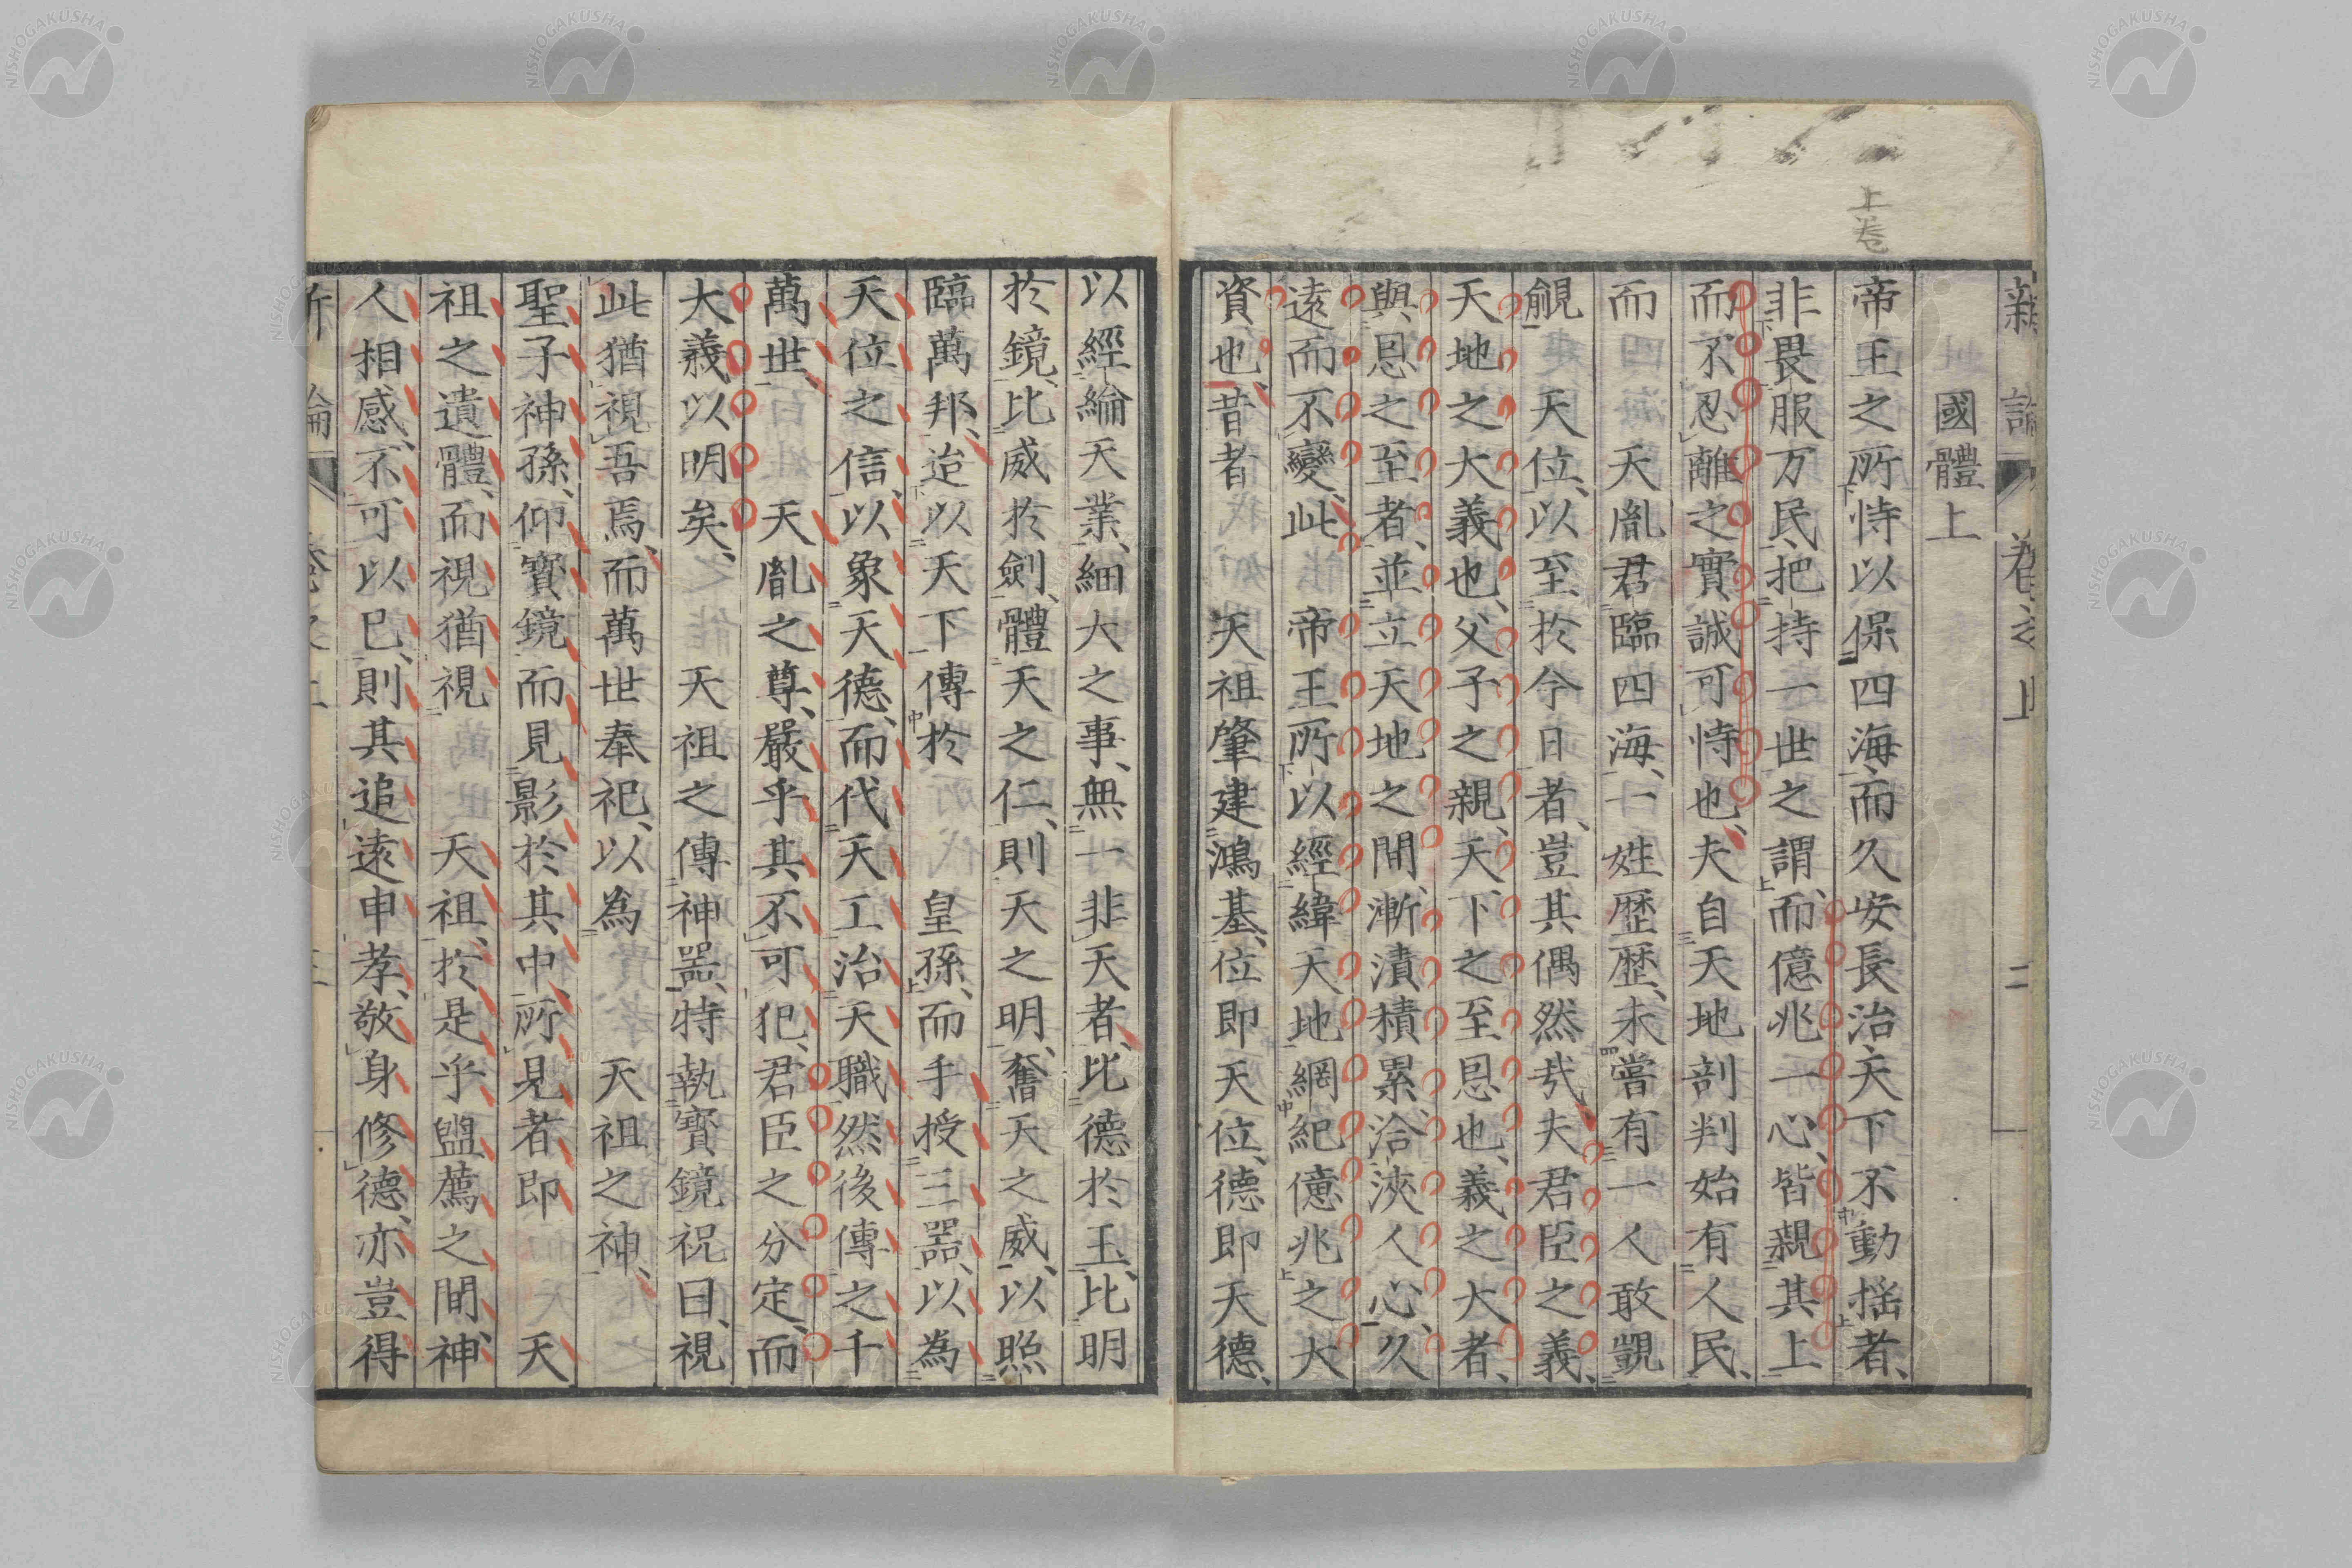 上卷
新論 卷之上 二
國體上
帝王之所恃以保四海而久安長治天下不動搖者
非畏服万民把持一世之謂而億兆一心皆親其上
而不忍離之實誠可恃也夫自天地剖判始有人民
而 天胤君臨四海一姓歷歷未嘗有一人敢覬
覦 天位以至於今日者豈其偶然哉夫君臣之義
天地之大義也父子之親天下之至恩也義之大者
與恩之至者並立天地之間漸漬積累洽浹人心久
遠而不變此 帝王所以經緯天地綱紀億兆之大
資也昔者 天祖肇建鴻基位即天位德即天德
以經綸天業細大之事無一非天者比德於玉比明
於鏡比威於劍體天之仁則天之明奮天之威以照
臨萬邦迨以天下傳於 皇孫而手授三器以為
天位之信以象天德而代天工治天職然後傳之千
萬世 天胤之尊嚴乎其不可犯君臣之分定而
大義以明矣 天祖之傳神器特執寶鏡祝曰視
此猶視吾焉而萬世奉祀以為 天祖之神
聖子神孫仰寶鏡而見影於其中所見者即 天
祖之遺體而視猶視 天祖於是乎盥薦之間神
人相感不可以已則其追遠申孝敬身修德亦豈得
NISHOGAKUSHA